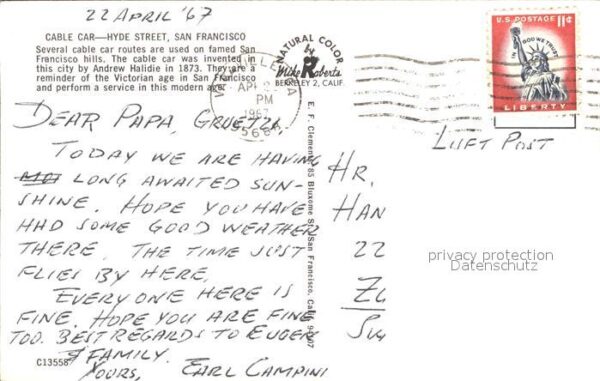 22 APRIL '67
CABLE CAR—HYDE STREET, SAN FRANCISCO
Several cable car routes are used on famed San
Francisco hills. The cable car was invented in
this city by Andrew Halidie in 1873. They are a
reminder of the Victorian age in San Francisco
and perform a service in this modern age.
NATURAL COLOR
by
Mike Roberts
BERKELEY 2, CALIF.
PM
1967
U.S. POSTAGE 11¢
IN GOD WE TRUST
LIBERTY
DEAR PAPA, GRUETZI,
TODAY WE ARE HAVING
LONG AWAITED SUN-
SHINE. HOPE YOU HAVE
HAD SOME GOOD WEATHER
THERE. THE TIME JUST
FLIES BY HERE.
EVERYONE HERE IS
FINE. HOPE YOU ARE FINE
TOO. BEST REGARDS TO EUGEN
& FAMILY.
YOURS, EARL CAMPINI
C13558
E. F. Clements, 85 Bluxome St., San Francisco, Calif.
LUFT POST
HR.
HAN
22
privacy protection
Datenschutz